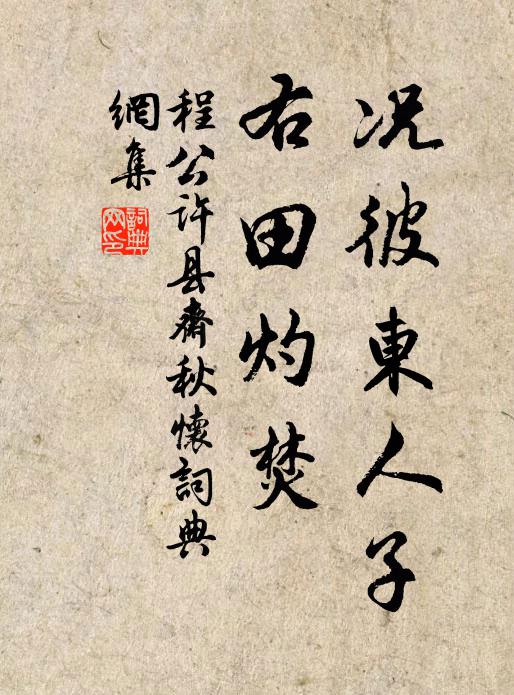 况彼東人子
右田灼焚
程公许县齋秋懷詞典
網集
詞典網印